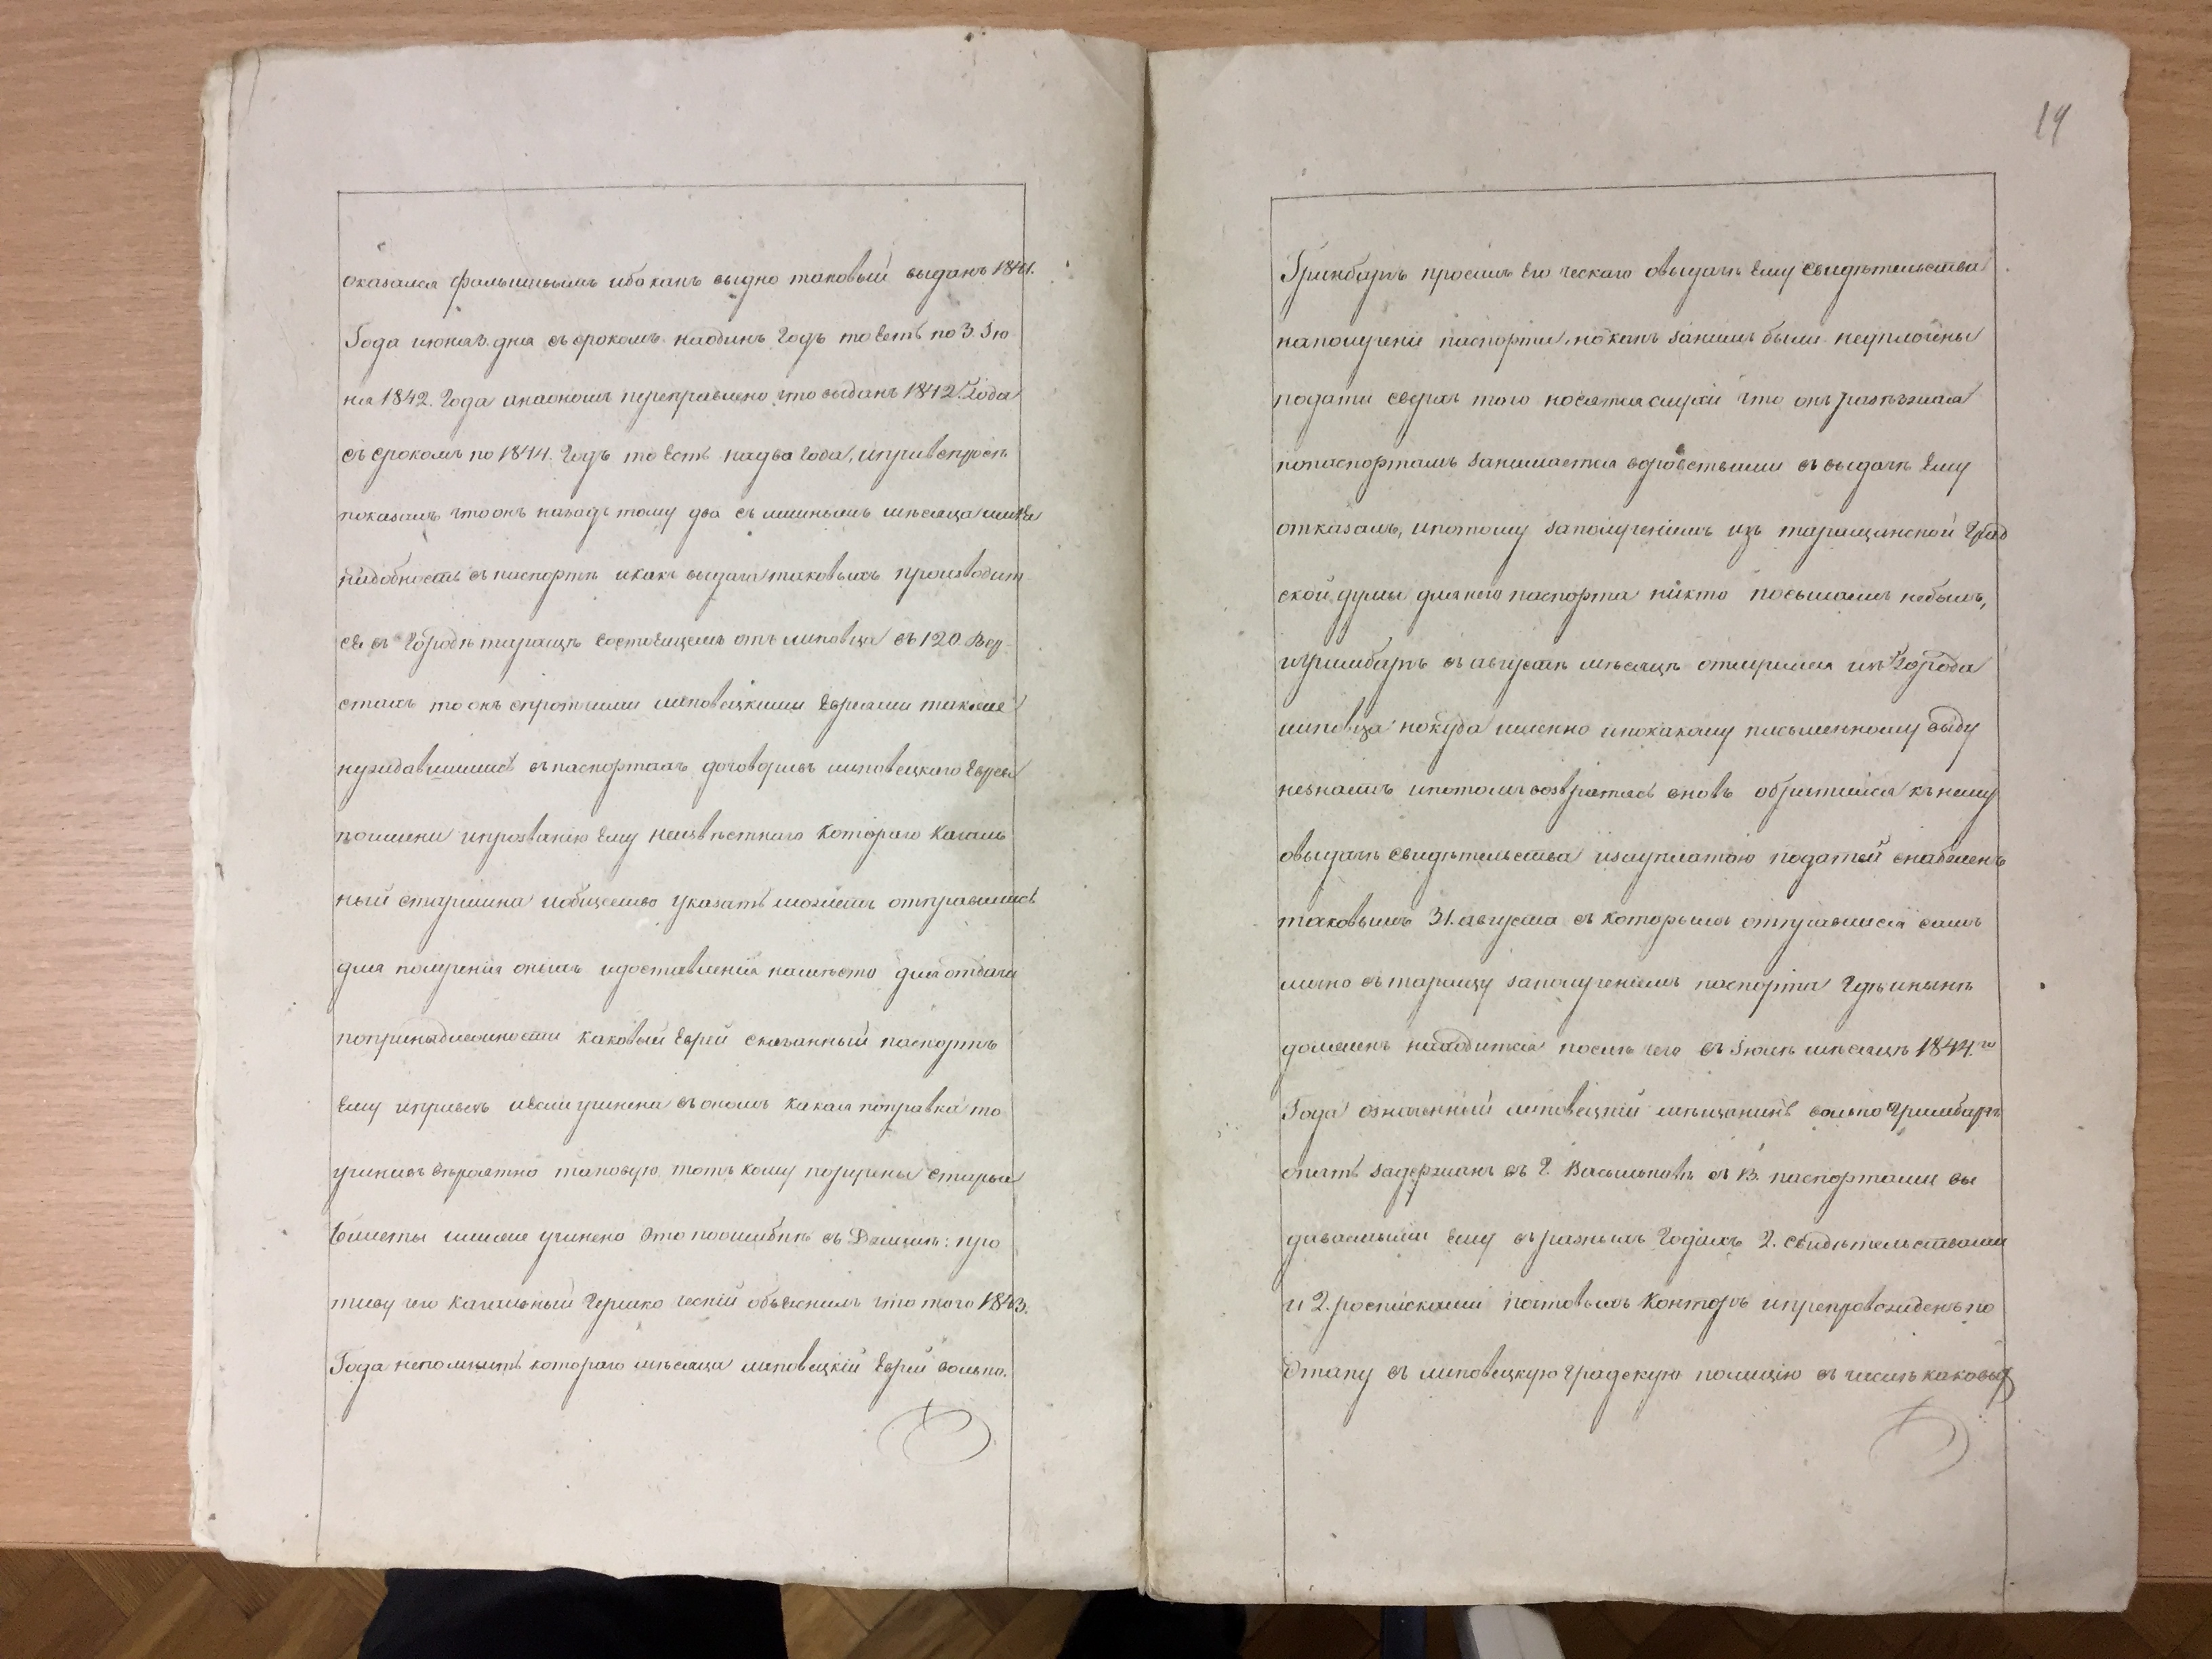 оказался фальшивымъ ибо какъ видно таковый выданъ 1841.
Года июня 3. дня съ срокомъ наодинъ Годъ то есть по 3. Iю
ня 1842. Года инаономъ переправлено что выданъ 1842. Года
съ срокомъ по 1844. Годъ то есть надва Года, и
показалъ что онъ назадъ тому два съ лишнымъ мѣсяца имѣя
надобность въ паспортѣ и какъ выдача таковыхъ производит
ся въ Городѣ таращѣ состоящемъ отъ липовца въ 120. Вер
стахъ то онъ спротчими липовецкими Евреями также
нуждавшимись въ паспортахъ договоривъ липовецкого Еврея
поимени ипрозванію Ему неизвѣстнаго котораго Кагаль
ный старшина иобщество указать можетъ отправились
для полученія оныхъ идоставленія наместо для отдачи
попринадлежности каковый Еврей сказанный паспортъ
Ему ипривезъ иесли учинена въ ономъ какая поправка то
учинивъ вѣроятно таковую тотъ кому поручены старыя
билеты или же учинено это поошибкѣ въ Думѣ: про
тиву чего Кагальный Гершко ческій объяснилъ что того 1843.
Года непомнитъ котораго мѣсяца липовецкій Еврей волько.
14
Гринбаръ просилъ Его ческаго овыдачѣ Ему свидѣтельства
наполученіе паспорта, но какъ занимъ были неуплочены
подати сверхъ того носятся слухи что онъ разъѣзжая
попаспортамъ занимается воровствами въ выдачѣ Ему
отказалъ, ипотому заполученіемъ изъ таращанской Град
ской думы для него паспорта никто посылаемъ небылъ,
игримбаръ въ августѣ мѣсяцѣ отлучился изъ Города
липовца нокуда именно ипокакому письменному виду
незнаетъ ипотомъ возвратясь вновь обратился къ нему
овыдачѣ свидѣтельства изауплатою податей снабженъ
таковымъ 31. августа съ которымъ отправился самъ
лично въ таращу заполученіемъ паспорта Гдѣ инынѣ
долженъ находится послѣ чего въ Iюлѣ мѣсяцѣ 1844.го
Года означенный липовецкій мѣщанинъ волько Гримбаръ
опять задержанъ въ Г. Васильковѣ съ 13. паспортами вы
даваемыми Ему въ разныхъ Годахъ 2. свидѣтельствами
и 2. росписками почтовыхъ Конторъ ипрепровожденъ по
Этапу въ липовецкую Градскую полицію въ числѣ каковых